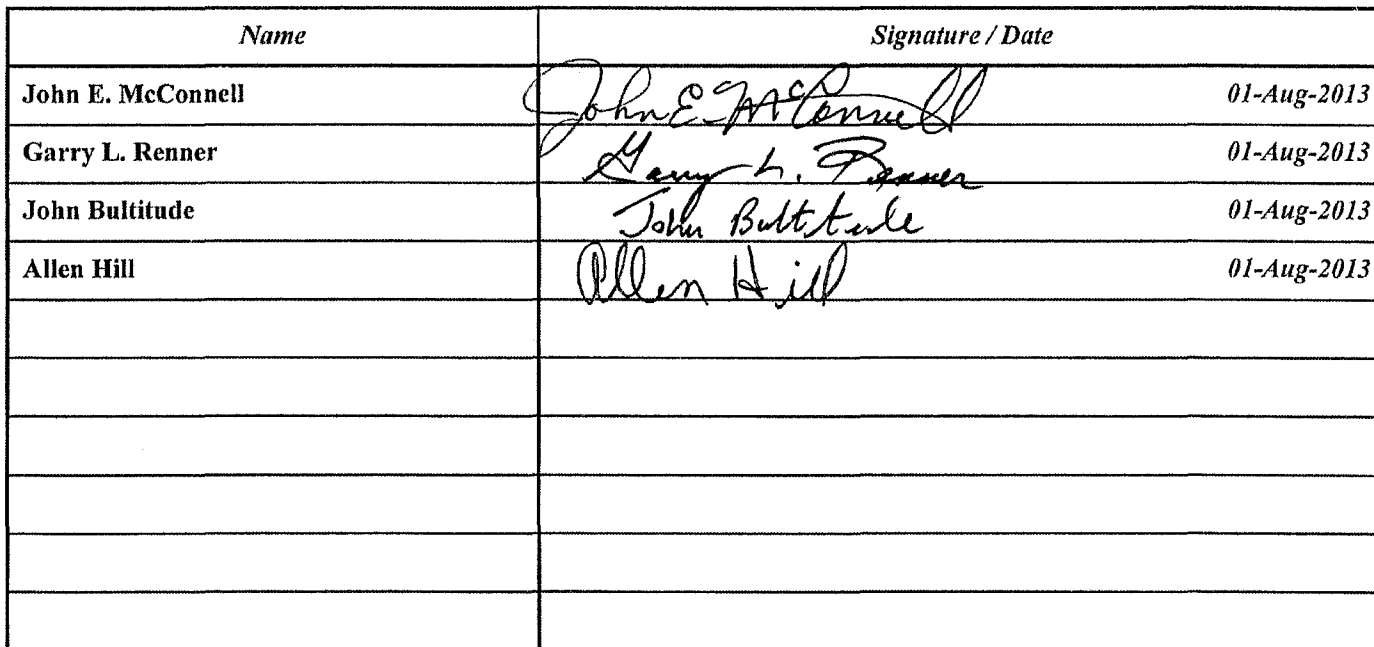 Name Signature / Date
John E. McConnell John E. McConnell 01-Aug-2013
Garry L. Renner Garry L. Renner 01-Aug-2013
John Bultitude John Bultitude 01-Aug-2013
Allen Hill Allen Hill 01-Aug-2013